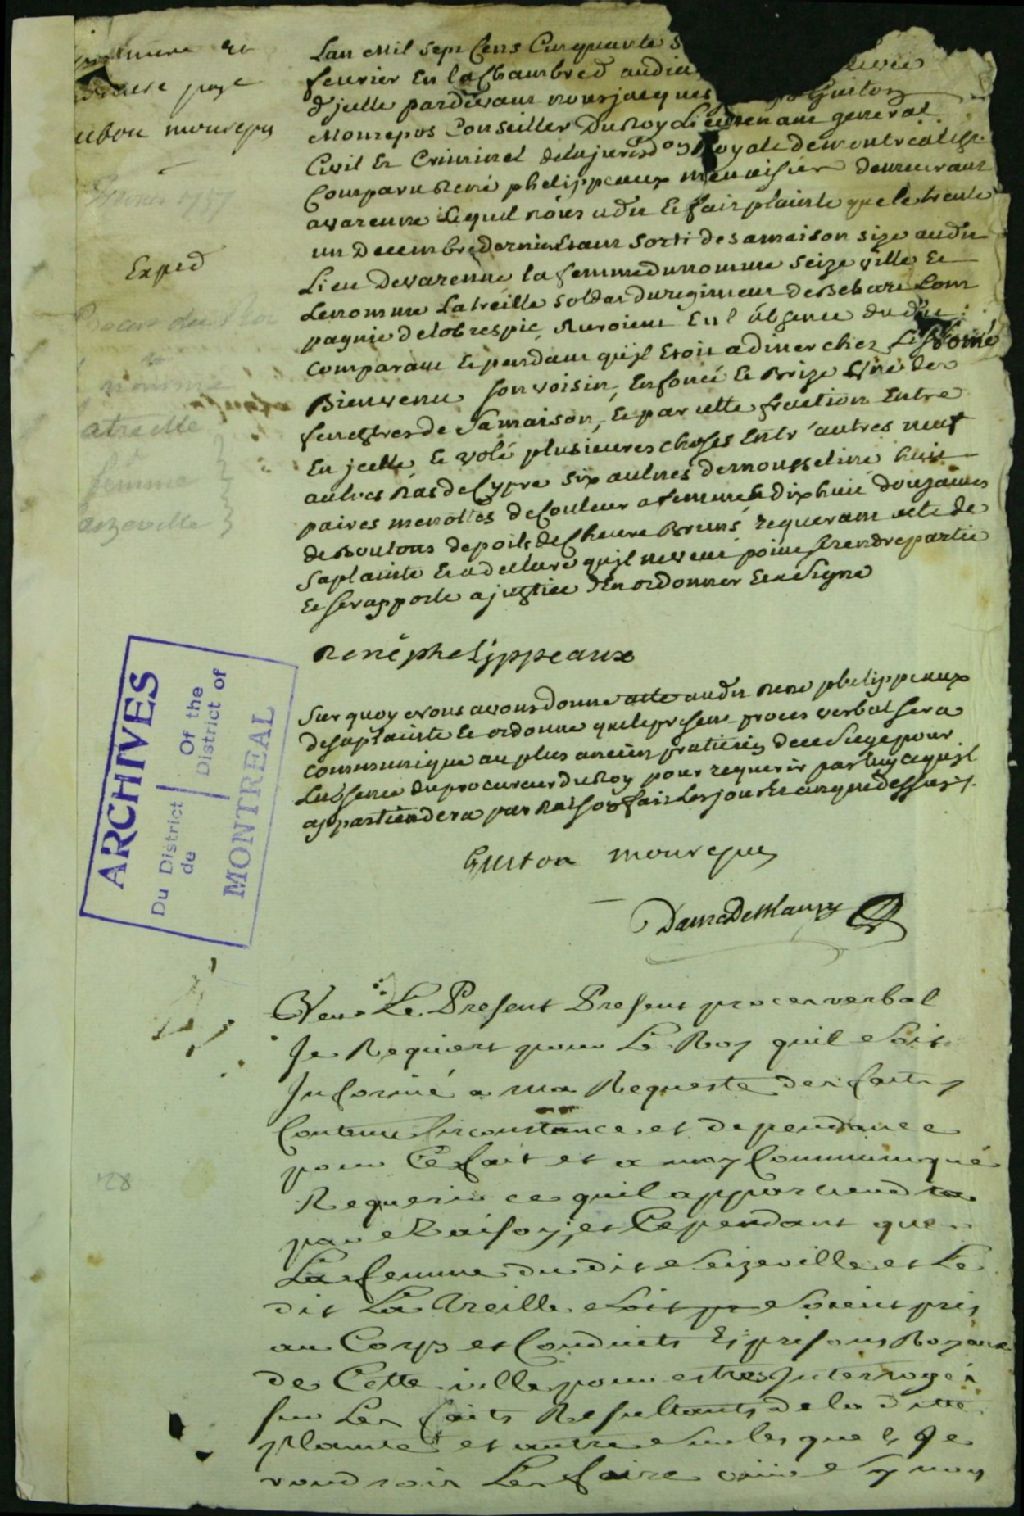 premiere et
page
Monrepos
Exped
atreille
femme
Lan Mil Sept Cens Cinquante s
fevrier En la Chambre d audie
d jcelle pardevant nous jacques Guiton
Monrepos Conseiller Du Roy Lieutenant general
Civil Et Criminel de la jurisdon Royale de montreal Est
Comparu René phelippeaux menuisier demeurant
a varenne Lequel nous a dit Et fait plainte que le trente
un Decembre dernier Etant sorti de sa maison size audit
Lieu De varenne la femme du nommé seizeville Et
Le nommé Latreille soldat du regiment de Bearn Com
pagnie de lobrespic auroient En l'absence dudit
Comparant Et pendant qu'jl Etoit a diner chez Le nomé
Bienvenu son voisin, Enfoncé Et Brizé Une des
fenestres de Sa maison, Et par cette fraction Entré
En jcelle Et volé plusieures choses Entr'autres neuf
aulnes Ras de Cypre six aulnes de mousseline huit
paires menottes de Couleur a femme Et dixhuit douzaines
de Boutons de poil de Chevre Bruns requerant acte de
Sa plainte Et a declaré qu'jl ne veut point se rendre partie
Et se rapporte a justice d'En ordonner Et a Signé
René phelippeaux
Sur quoy Nous avons donné acte audit René phelippeaux
de sa plainte Et ordonné que le present proces verbal sera
communiqué au plus ancien praticien de ce Siege pour
L'absence du procureur du Roy pour requerir par luy ce qu'jl
appartiendera par Raison fait Les jour Et an que dessus
Guiton Monrepos
Danré De Blanzy
ARCHIVES
Du District
de
Of the
District of
MONTREAL
Veu Le Present Present proces verbal
Je Requiert pour Le Roy quil Soit
Informé a ma Requeste des faits y
Contenu Circonstance et dependance
pour Ce fait et a moy Communiqué
Requerir ce quil appartiendra
par Raison, et Cependant que
La femme du dit Seizeville et Le
dit La Treille Soit Soient pris
au Corps et Conduits Es prisons Royaux
de Cette ville pour estres Interrogés
sur Les faits Resultants de la ditte
plainte et autre Sur les quels Je
voudrois Les faire